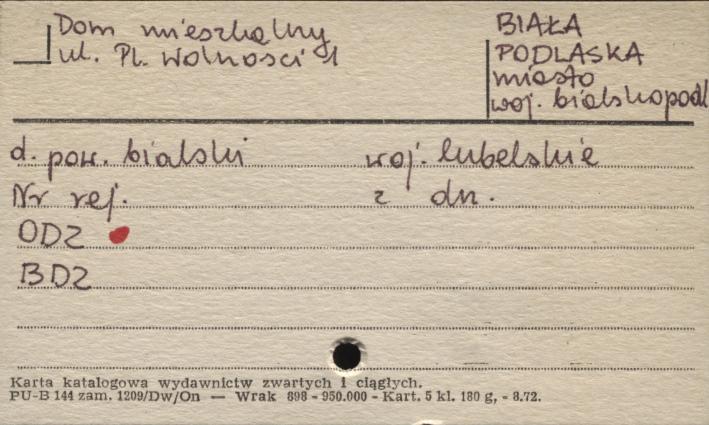 Dom mieszkalny
ul. Pl. Wolnosci 1
BIAŁA
PODLASKA
miasto
woj. bialskopodl
d. pow. bialski woj. lubelskie
Nr rej. z dn.
ODZ
BDZ
Karta katalogowa wydawnictw zwartych i ciągłych.
PU-B 144 zam. 1209/Dw/On — Wrak 898 - 950.000 - Kart. 5 kl. 180 g, - 8.72.